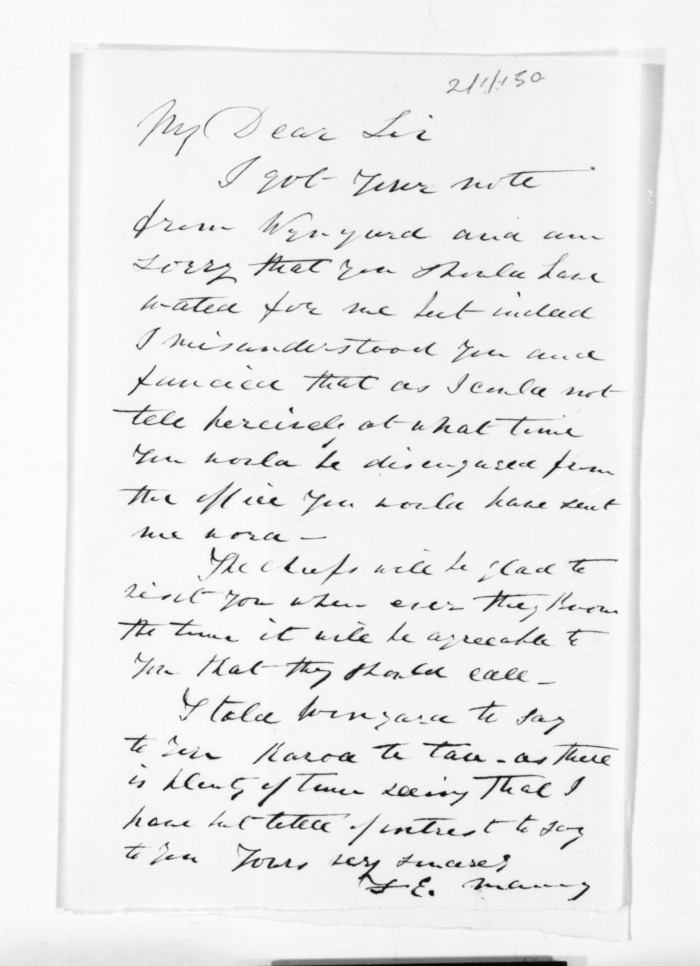 2/1/150
My Dear Sir
I got your note
from Wynyard and am
sorry that you should have
wated for me but indeed
I misunderstood you and
fancied that as I could not
tell percisely at what time
you would be disengaged from
the office you would have sent
me word —
The chiefs will be glad to
visit you when ever they know
the time it will be agreeable to
you that they should call —
I told Winyard to say
to you Karoa te tau - as there
is plenty of time seeing that I
have but little of intrest to say
to you Yours very sincerely
F E. Maning